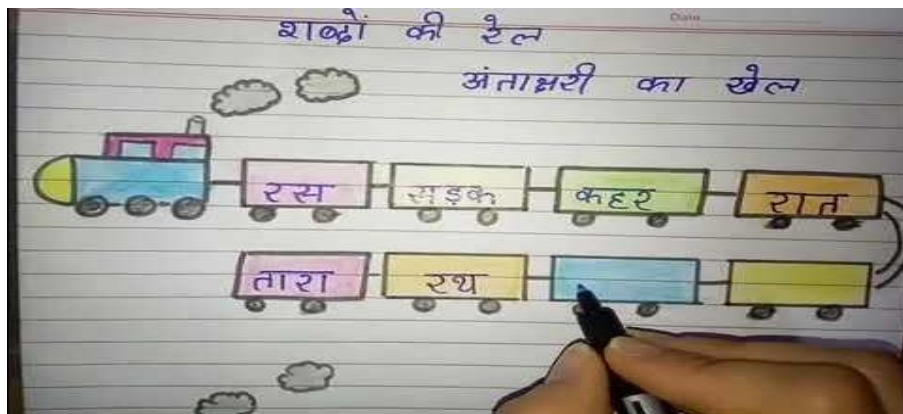 Date
शब्दों की रेल
अंताक्षरी का खेल
रस सड़क कहर रात
तारा रथ